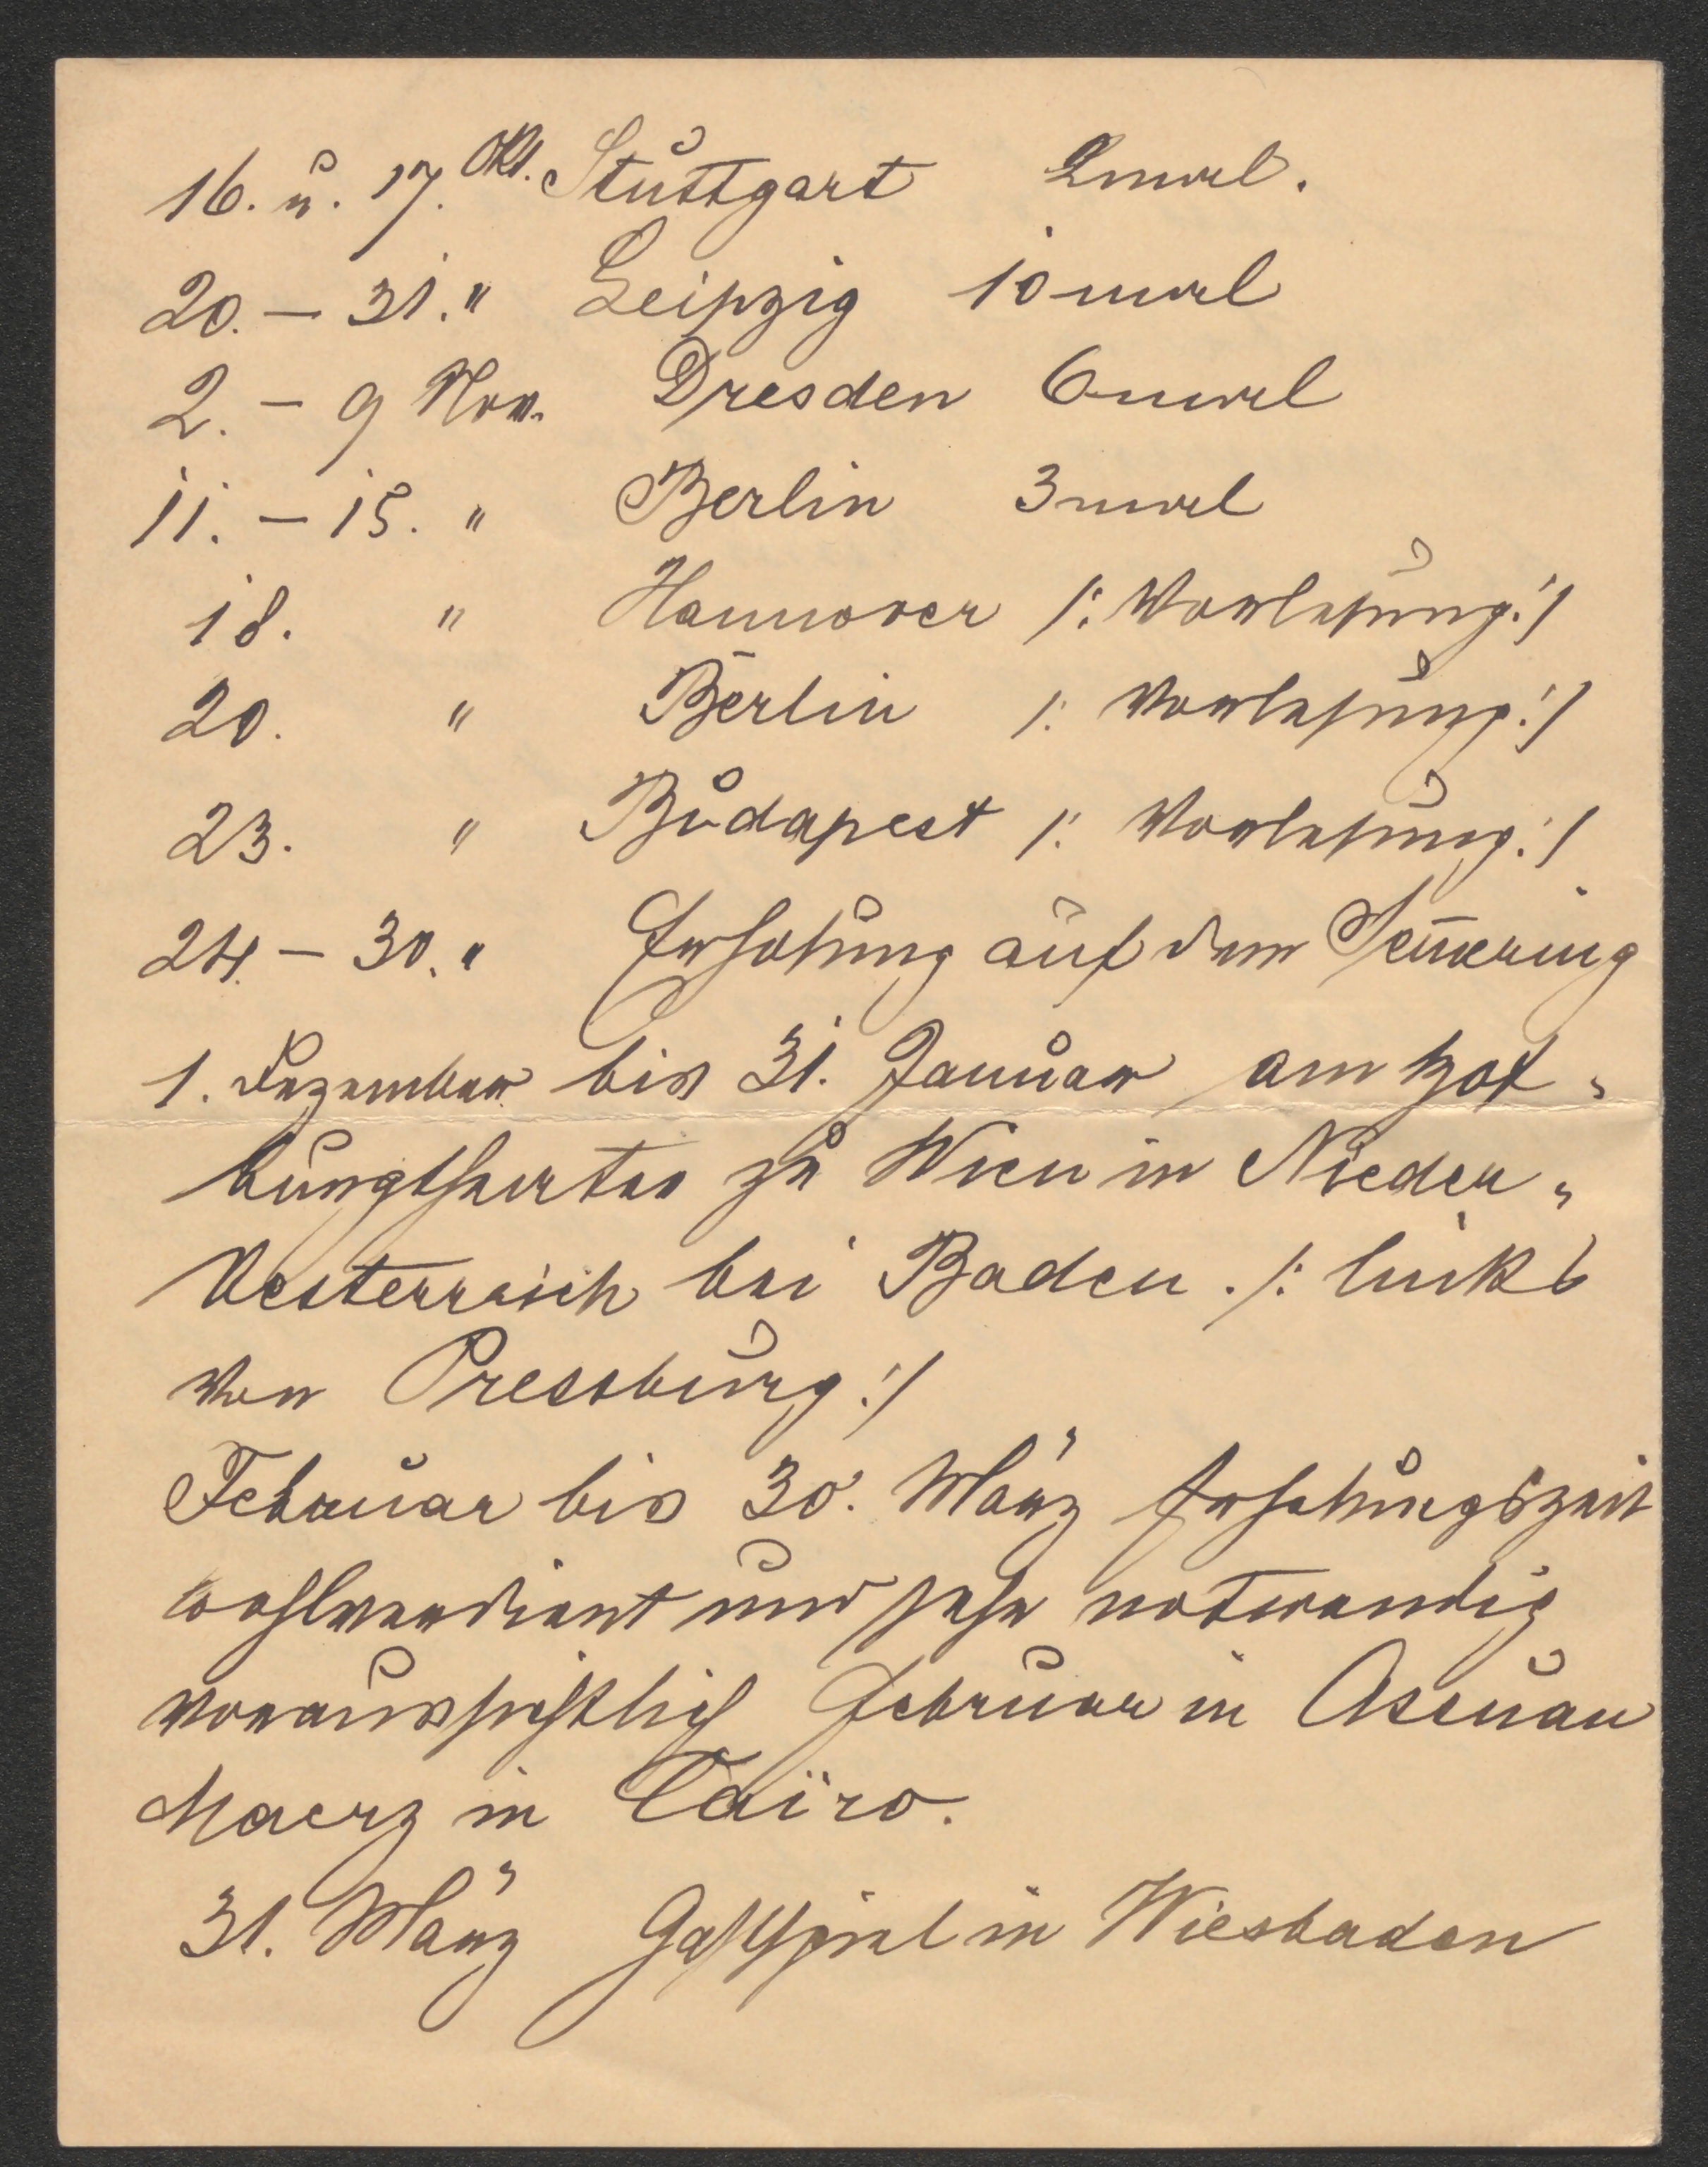 16. u. 17. Okt. Stuttgart 2mal.
20. – 31. " Leipzig 10mal
2. – 9 Nov. Dresden 6mal
11. – 15. " Berlin 3mal
18. " Hannover /: Vorlesung :/
20. " Berlin /: Vorlesung :/
23. " Budapest /: Vorlesung :/
24. – 30. " Erholung auf dem Sem̅ering
1. Dezember bis 31. Januar am Hof-
burgtheater zu Wien in Nieder-
Oesterreich bei Baden. /: links
von Pressburg :/
Februar bis 30. März Erholungszeit
wohlverdient und sehr notwendig
voraussichtlich Februar in Assuan
Maerz in Caïro.
31. März Gastspiel in Wiesbaden